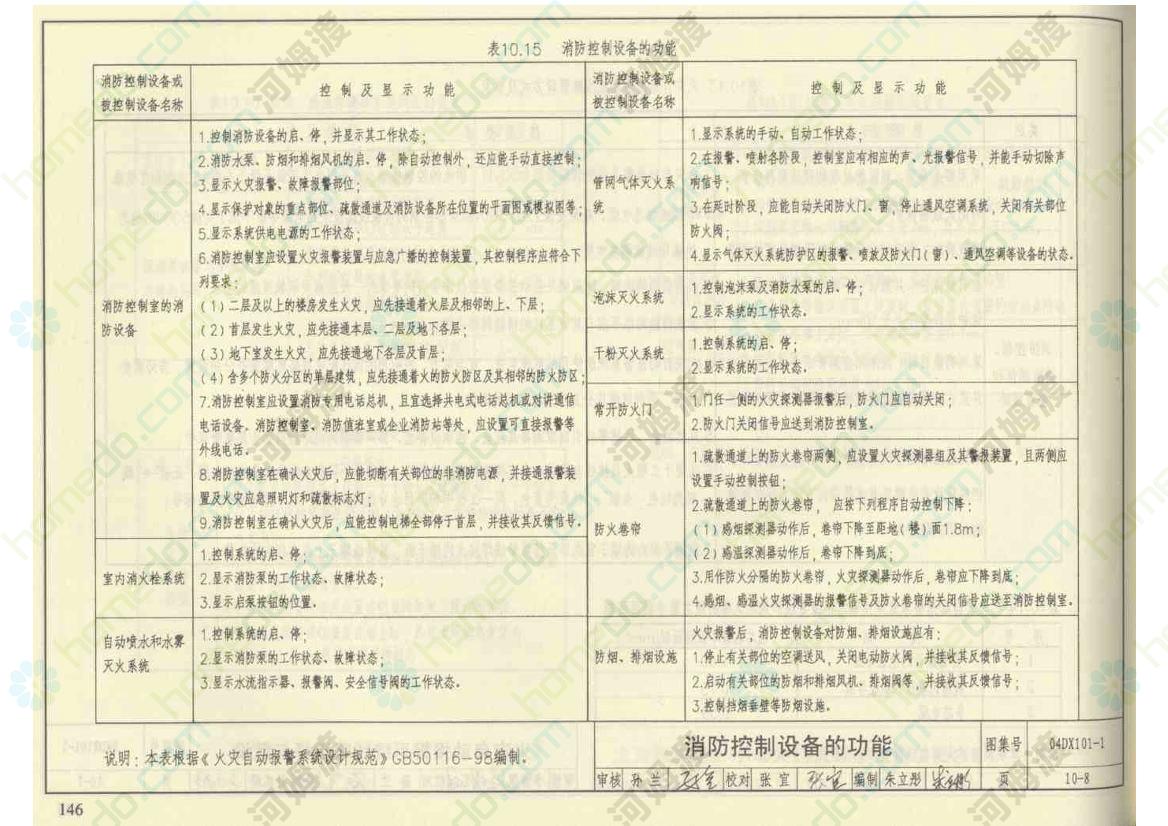 表10.15 消防控制设备的功能
消防控制设备或
被控制设备名称
控制及显示功能
消防控制室的消
防设备
1.控制消防设备的启、停,并显示其工作状态;
2.消防水泵、防烟和排烟风机的启、停,除自动控制外,还应能手动直接控制;
3.显示火灾报警、故障报警部位;
4.显示保护对象的重点部位、疏散通道及消防设备所在位置的平面图或模拟图等;
5.显示系统供电电源的工作状态;
6.消防控制室应设置火灾报警装置与应急广播的控制装置,其控制程序应符合下
列要求:
(1)二层及以上的楼房发生火灾,应先接通着火层及相邻的上、下层;
(2)首层发生火灾,应先接通本层、二层及地下各层;
(3)地下室发生火灾,应先接通地下各层及首层;
(4)含多个防火分区的单层建筑,应先接通着火的防火防区及其相邻的防火防区;
7.消防控制室应设置消防专用电话总机,且宜选择共电式电话总机或对讲通信
电话设备。消防控制室、消防值班室或企业消防站等处,应设置可直接报警等
外线电话。
8.消防控制室在确认火灾后,应能切断有关部位的非消防电源,并接通报警装
置及火灾应急照明灯和疏散标志灯;
9.消防控制室在确认火灾后,应能控制电梯全部停于首层,并接收其反馈信号。
室内消火栓系统
1.控制系统的启、停;
2.显示消防泵的工作状态、故障状态;
3.显示启泵按钮的位置。
自动喷水和水雾
灭火系统
1.控制系统的启、停;
2.显示消防泵的工作状态、故障状态;
3.显示水流指示器、报警阀、安全信号阀的工作状态。
消防控制设备或
被控制设备名称
控制及显示功能
管网气体灭火系
统
1.显示系统的手动、自动工作状态;
2.在报警、喷射各阶段,控制室应有相应的声、光报警信号,并能手动切除声
响信号;
3.在延时阶段,应能自动关闭防火门、窗,停止通风空调系统,关闭有关部位
防火阀;
4.显示气体灭火系统防护区的报警、喷放及防火门(窗)、通风空调等设备的状态。
泡沫灭火系统
1.控制泡沫泵及消防水泵的启、停;
2.显示系统的工作状态。
干粉灭火系统
1.控制系统的启、停;
2.显示系统的工作状态。
常开防火门
1.门任一侧的火灾探测器报警后,防火门应自动关闭;
2.防火门关闭信号应送到消防控制室。
防火卷帘
1.疏散通道上的防火卷帘两侧,应设置火灾探测器组及其警报装置,且两侧应
设置手动控制按钮;
2.疏散通道上的防火卷帘,应按下列程序自动控制下降:
(1)感烟探测器动作后,卷帘下降至距地(楼)面1.8m;
(2)感温探测器动作后,卷帘下降到底;
3.用作防火分隔的防火卷帘,火灾探测器动作后,卷帘应下降到底;
4.感烟、感温火灾探测器的报警信号及防火卷帘的关闭信号应送至消防控制室。
防烟、排烟设施
火灾报警后,消防控制设备对防烟、排烟设施应有:
1.停止有关部位的空调送风,关闭电动防火阀,并接收其反馈信号;
2.启动有关部位的防烟和排烟风机、排烟阀等,并接收其反馈信号;
3.控制挡烟垂壁等防烟设施。
说明:本表根据《火灾自动报警系统设计规范》GB50116-98编制。
消防控制设备的功能
图集号 04DX101-1
审核 孙兰 校对 张宜 编制 朱立彤 页 10-8
146
河姆渡
homedo.com